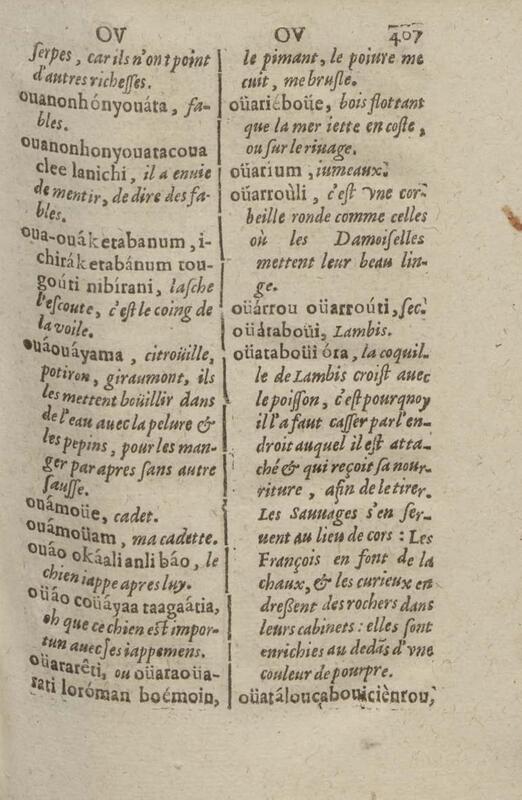 OV
ſerpes, car ils n'ont point
d'autres richeſſes.
ouanonhónyouáta, fa-
bles.
ouanonhonyouatacoua
clee lanichi, il a enuie
de mentir, de dire des fa-
bles.
oua-ouáketabanum, i-
chiráketabánum tou-
goúti nibírani, laſche
l'eſcoute, c'eſt le coing de
la voile.
ouáouáyama, citroüille,
potiron, giraumont, ils
les mettent boüillir dans
de l'eau auec la pelure &
les pepins, pour les man-
ger par apres ſans autre
ſauſſe.
ouámoüe, cadet.
ouámoüam, ma cadette.
ouáo okáali anli báo, le
chien iappe apres luy.
oüáo coüáyaa taagaátia,
oh que ce chien eſt impor-
tun auec ſes iappemens.
oüararêti, ou oüaraoüa-
rati loróman boémoin,
OV 407
le pimant, le poiure me
cuit, me bruſle.
oüariéboüe, bois flottant
que la mer iette en coſte,
ou ſur le riuage.
oüarium, iumeaux.
oüarroùli, c'eſt vne cor-
beille ronde comme celles
où les Damoiſelles
mettent leur beau lin-
ge.
oüárrou oüarroúti, ſec.
oüátaboüi, Lambis.
oüataboüi óra, la coquil-
le de Lambis croiſt auec
le poiſſon, c'eſt pourquoy
il l'a faut caſſer par l'en-
droit auquel il eſt atta-
ché & qui reçoit ſa nour-
riture, afin de le tirer.
Les Sauuages s'en ſer-
uent au lieu de cors : Les
François en font de la
chaux, & les curieux en
dreſſent des rochers dans
leurs cabinets : elles ſont
enrichies au dedãs d'vne
couleur de pourpre.
oüatálouçabouicièntou,